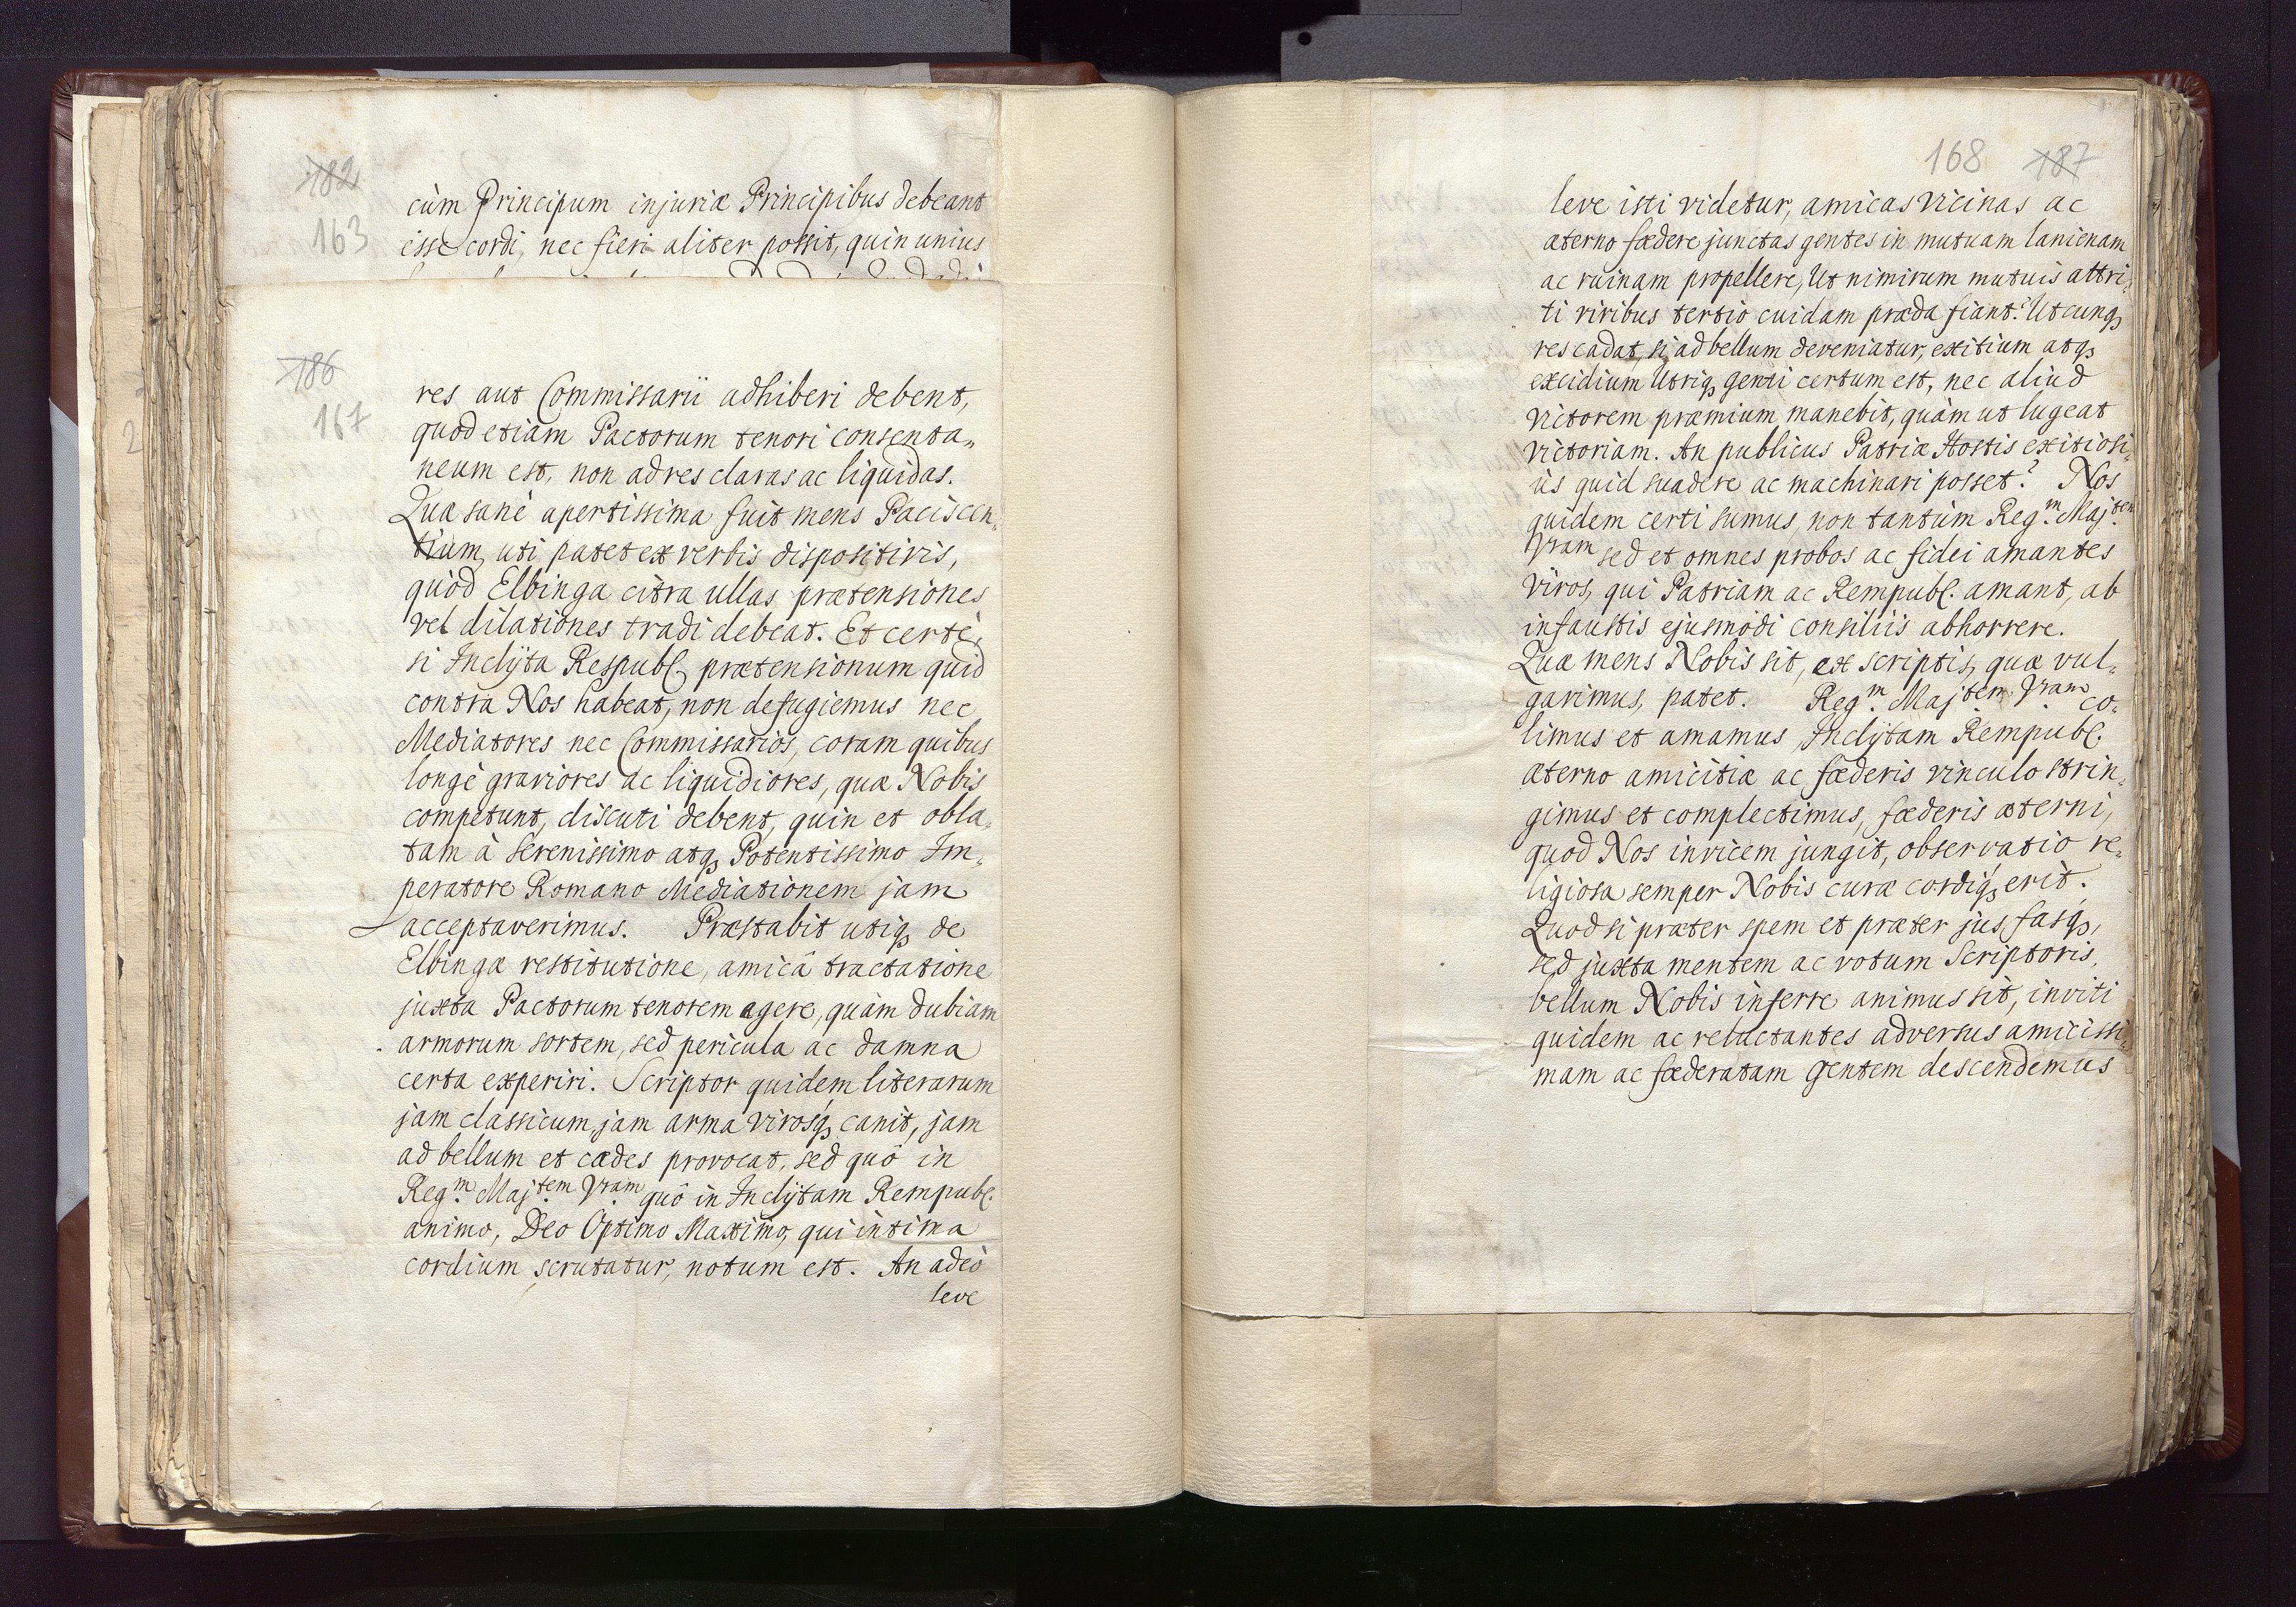 182
163
cùm Principum injuriæ Principibus debeant
esse cordi, nec fieri aliter possit, quin unius
186
167
res aut Commissarii adhiberi debent,
quod etiam Pactorum tenori consenta„
neum est, non ad res claras ac liquidas.
Quæ sanè apertissima fuit mens Paciscen„
tium, uti patet ex verbis dispositivis,
quòd Elbinga citra ullas prætensiones
vel dilationes tradi debeat. Et certè,
si Inclÿta Respubl. prætensionum quid
contra Nos habeat, non defugiemus nec
Mediatores nec Commissarios, coram quibus
longè graviores ac liquidiores, quæ Nobis
competunt, discuti debent, quin et obla„
tam à Serenissimo atq3 Potentissimo Im„
peratore Romano Mediationem jam
acceptaverimus. Præstabit utiq3 de
Elbingæ restitutione, amicâ tractatione
juxta Pactorum tenorem agere, quàm dubiam
armorum sortem, sed pericula ac damna
certa experiri. Scriptor quidem literarum
jam classicum, jam arma virosq3 canit, jam
ad bellum et cædes provocat, sed quô in
Reg.m Maj.tem Vram quô in Inclÿtam Rempubl.
animo, Deo Optimo Maximo, qui intima
cordium scrutatur, notum est. An adeò
leve
168 187
leve isti videtur, amicas vicinas ac
æterno fœdere junctas gentes in mutuam lanienam
ac ruinam propellere, Ut nimirum mutuis attri„
ti viribus tertio cuidam præda fiant? Utcunq3
res cadat, si ad bellum deveniatur, exitium atq3
excidium Utriq3 genti certum est, nec aliud
victorem præmium manebit, quàm ut lugeat
victoriam. An publicus Patriæ Hostis exitiosi„
ùs quid suadere ac machinari posset? Nos
quidem certi sumus, non tantùm Reg.m Maj.tem
Vram sed et omnes probos ac fidei amantes
viros, qui Patriam ac Rempubl. amant, ab
infaustis ejusmodi consiliis abhorrere.
Quæ mens Nobis sit, ex scriptis, quæ vul„
garimus, patet. Reg.m Maj.tem Vram co„
limus et amamus, Inclÿtam Rempubl.
æterno amicitiæ ac fœderis vinculo strin„
gimus et complectimus, fœderis æterni,
quod Nos invicem jungit, observatio re„
ligiosa semper Nobis curæ cordiq3 erit.
Quod si præter spem et præter jus fasq3,
sed juxta mentem ac votum Scriptoris,
bellum Nobis inferre animus sit, inviti
quidem ac reluctantes adversus amicissi„
mam ac fœderatam gentem descendemus